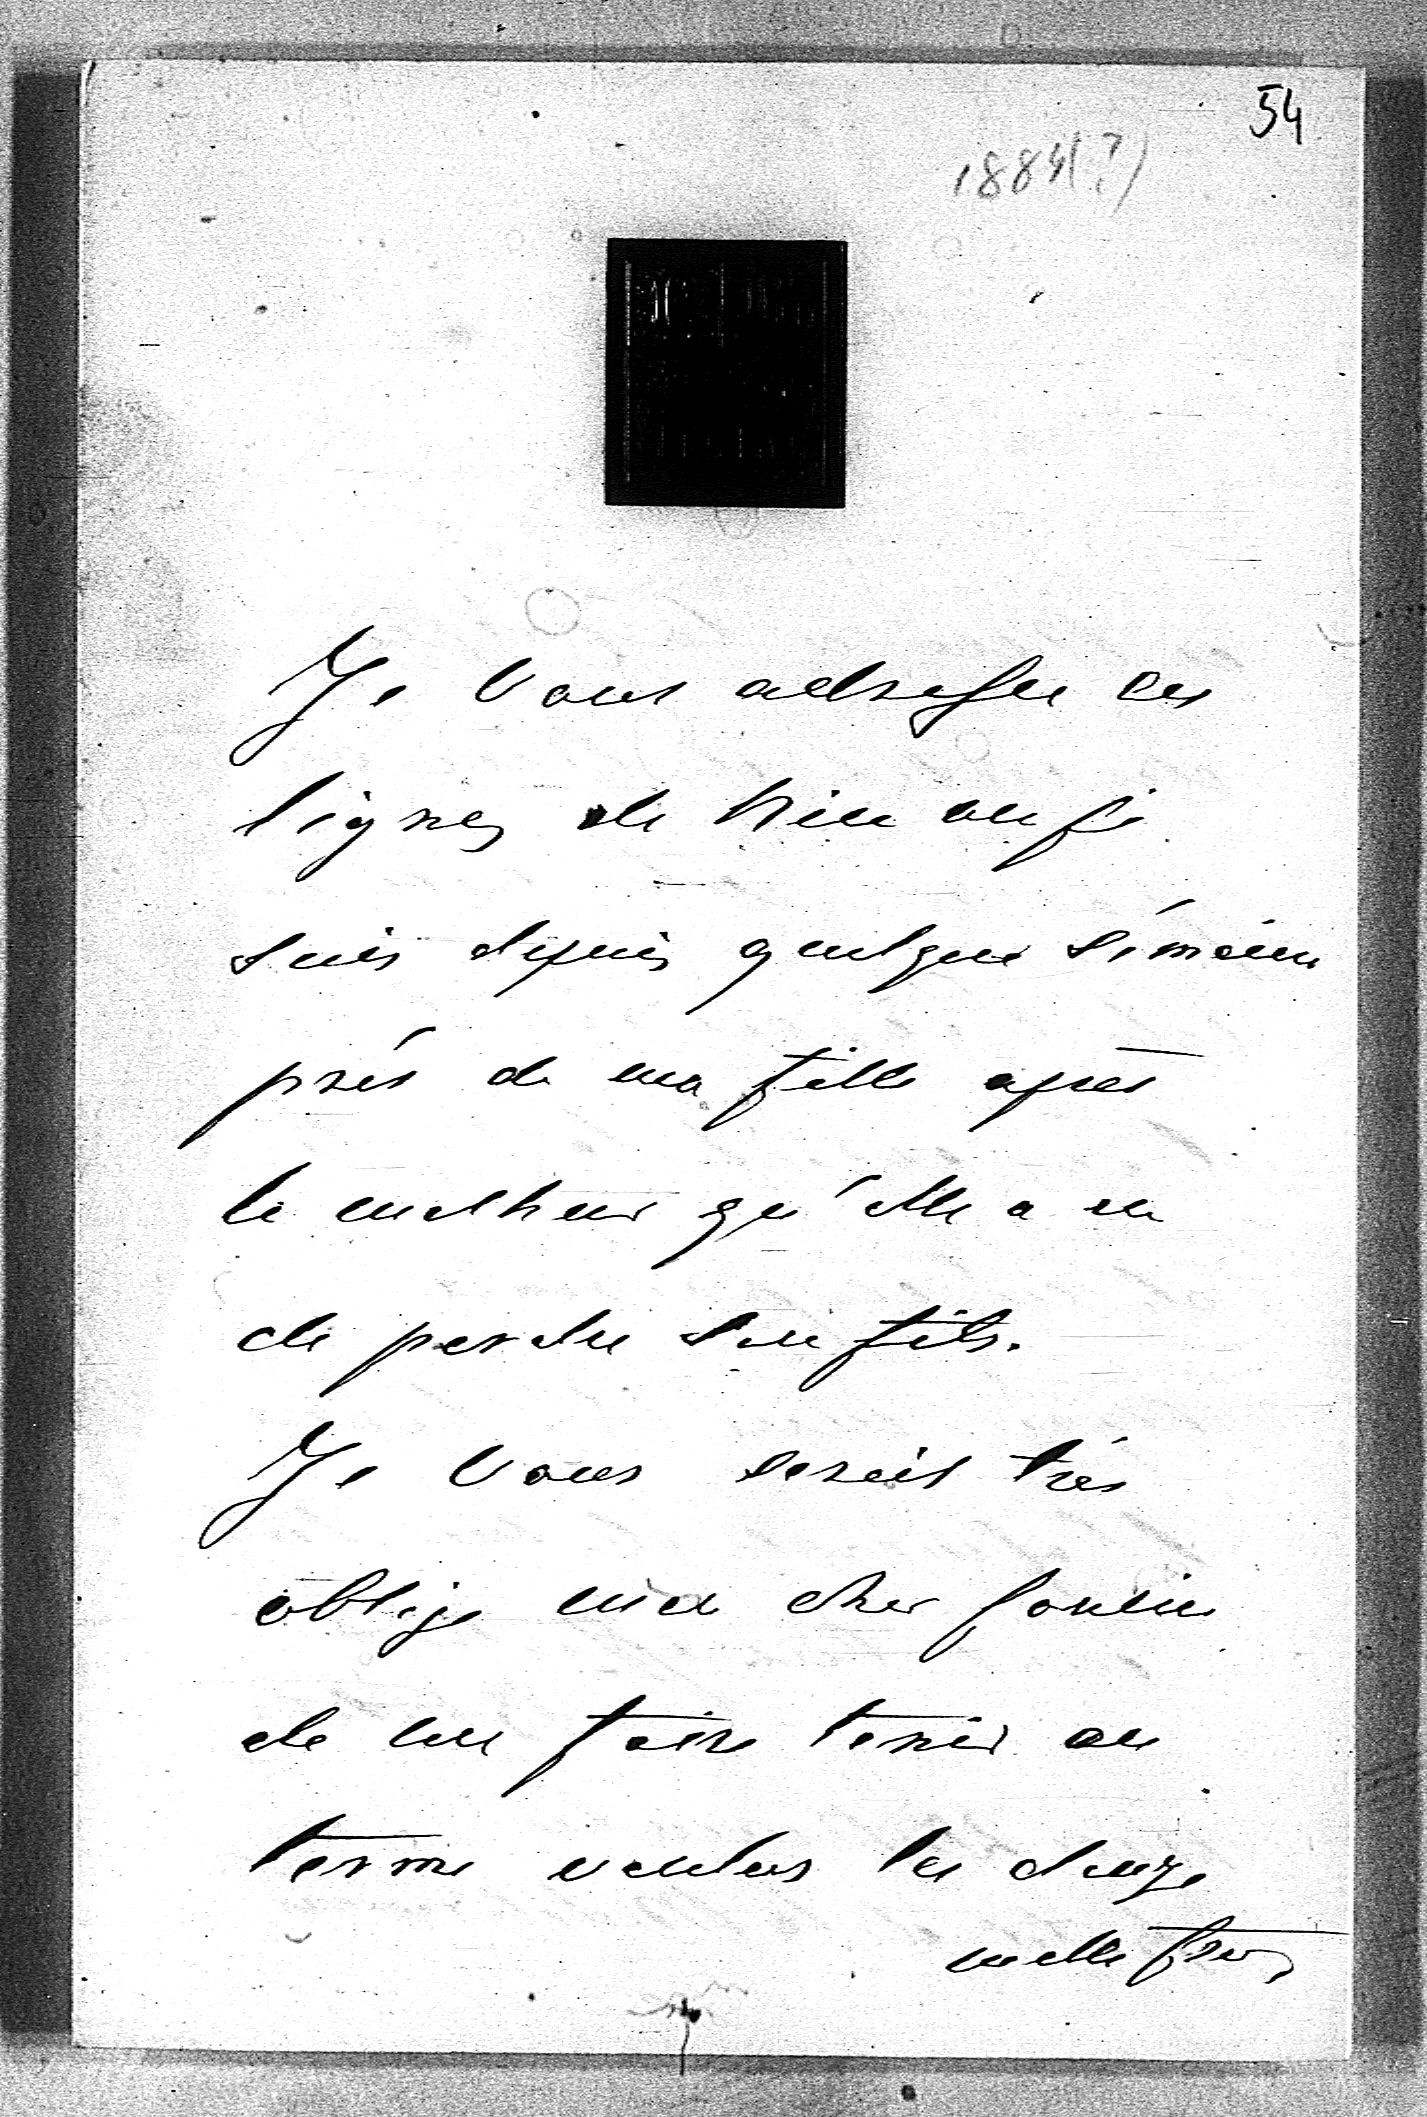 54
1884(?)
Je vous adresse ces
lignes de Nice ou je
suis depuis quelque sémaine
prés de ma fille apres
le malheur qu'elle a eu
de perdre son fils.
Je vous serais trés
obligé mon cher
de me faire tenir au
terme voulus les douze
mille frcs